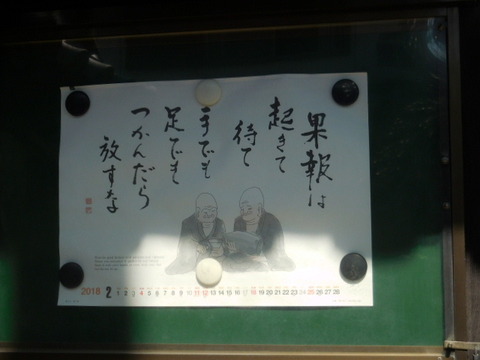 果報は
起きて
待て
手でも
足でも
つかんだら
放すな
2018 2 1 2 3 4 5 6 7 8 9 10 11 12 13 14 15 16 17 18 19 20 21 22 23 24 25 26 27 28